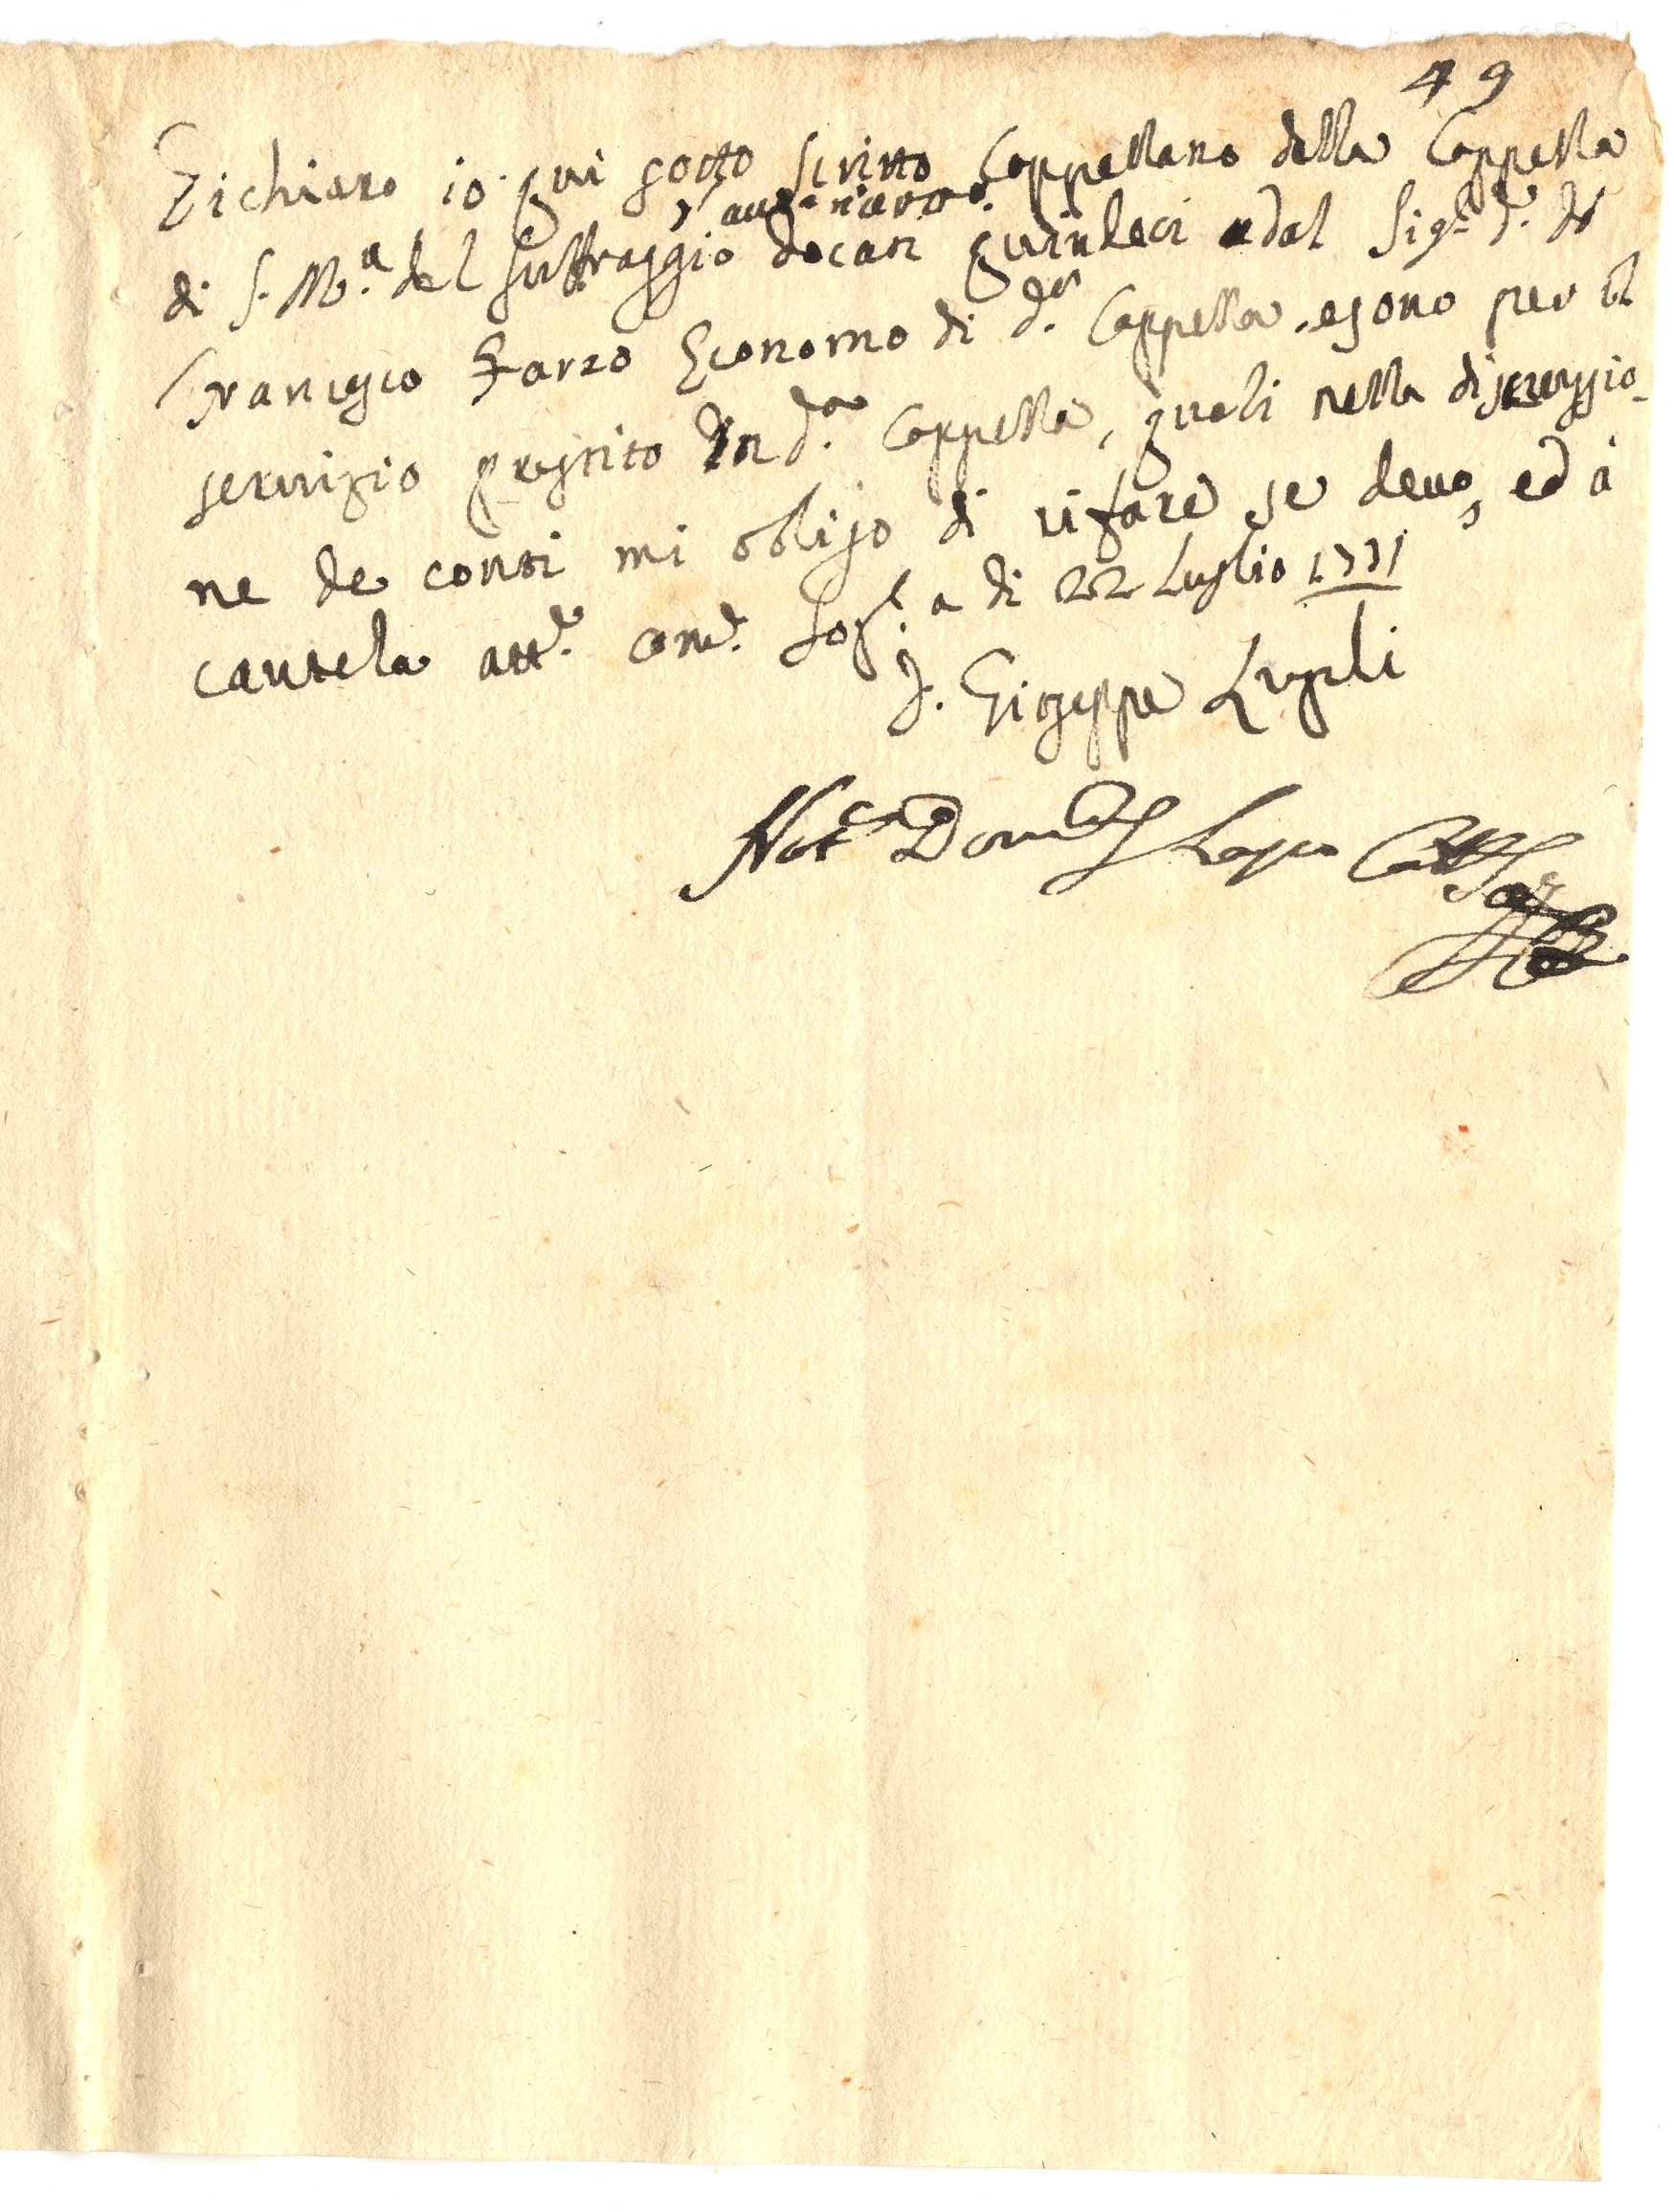 49
Dichiaro io qui sotto scritto Cappellano della Cappella
di S. M.ª del Suffraggio docati quindeci dal Sig.r D.
Francesco Farzo Economo di d.ª Cappella, e sono per il
servizio prestito in d.ª Cappella, quali nella discussio-
ne de conti mi obligo di rifare se devo, ed à
cautela a di 22 Luglio 1731
D. Gioseppe Lupli